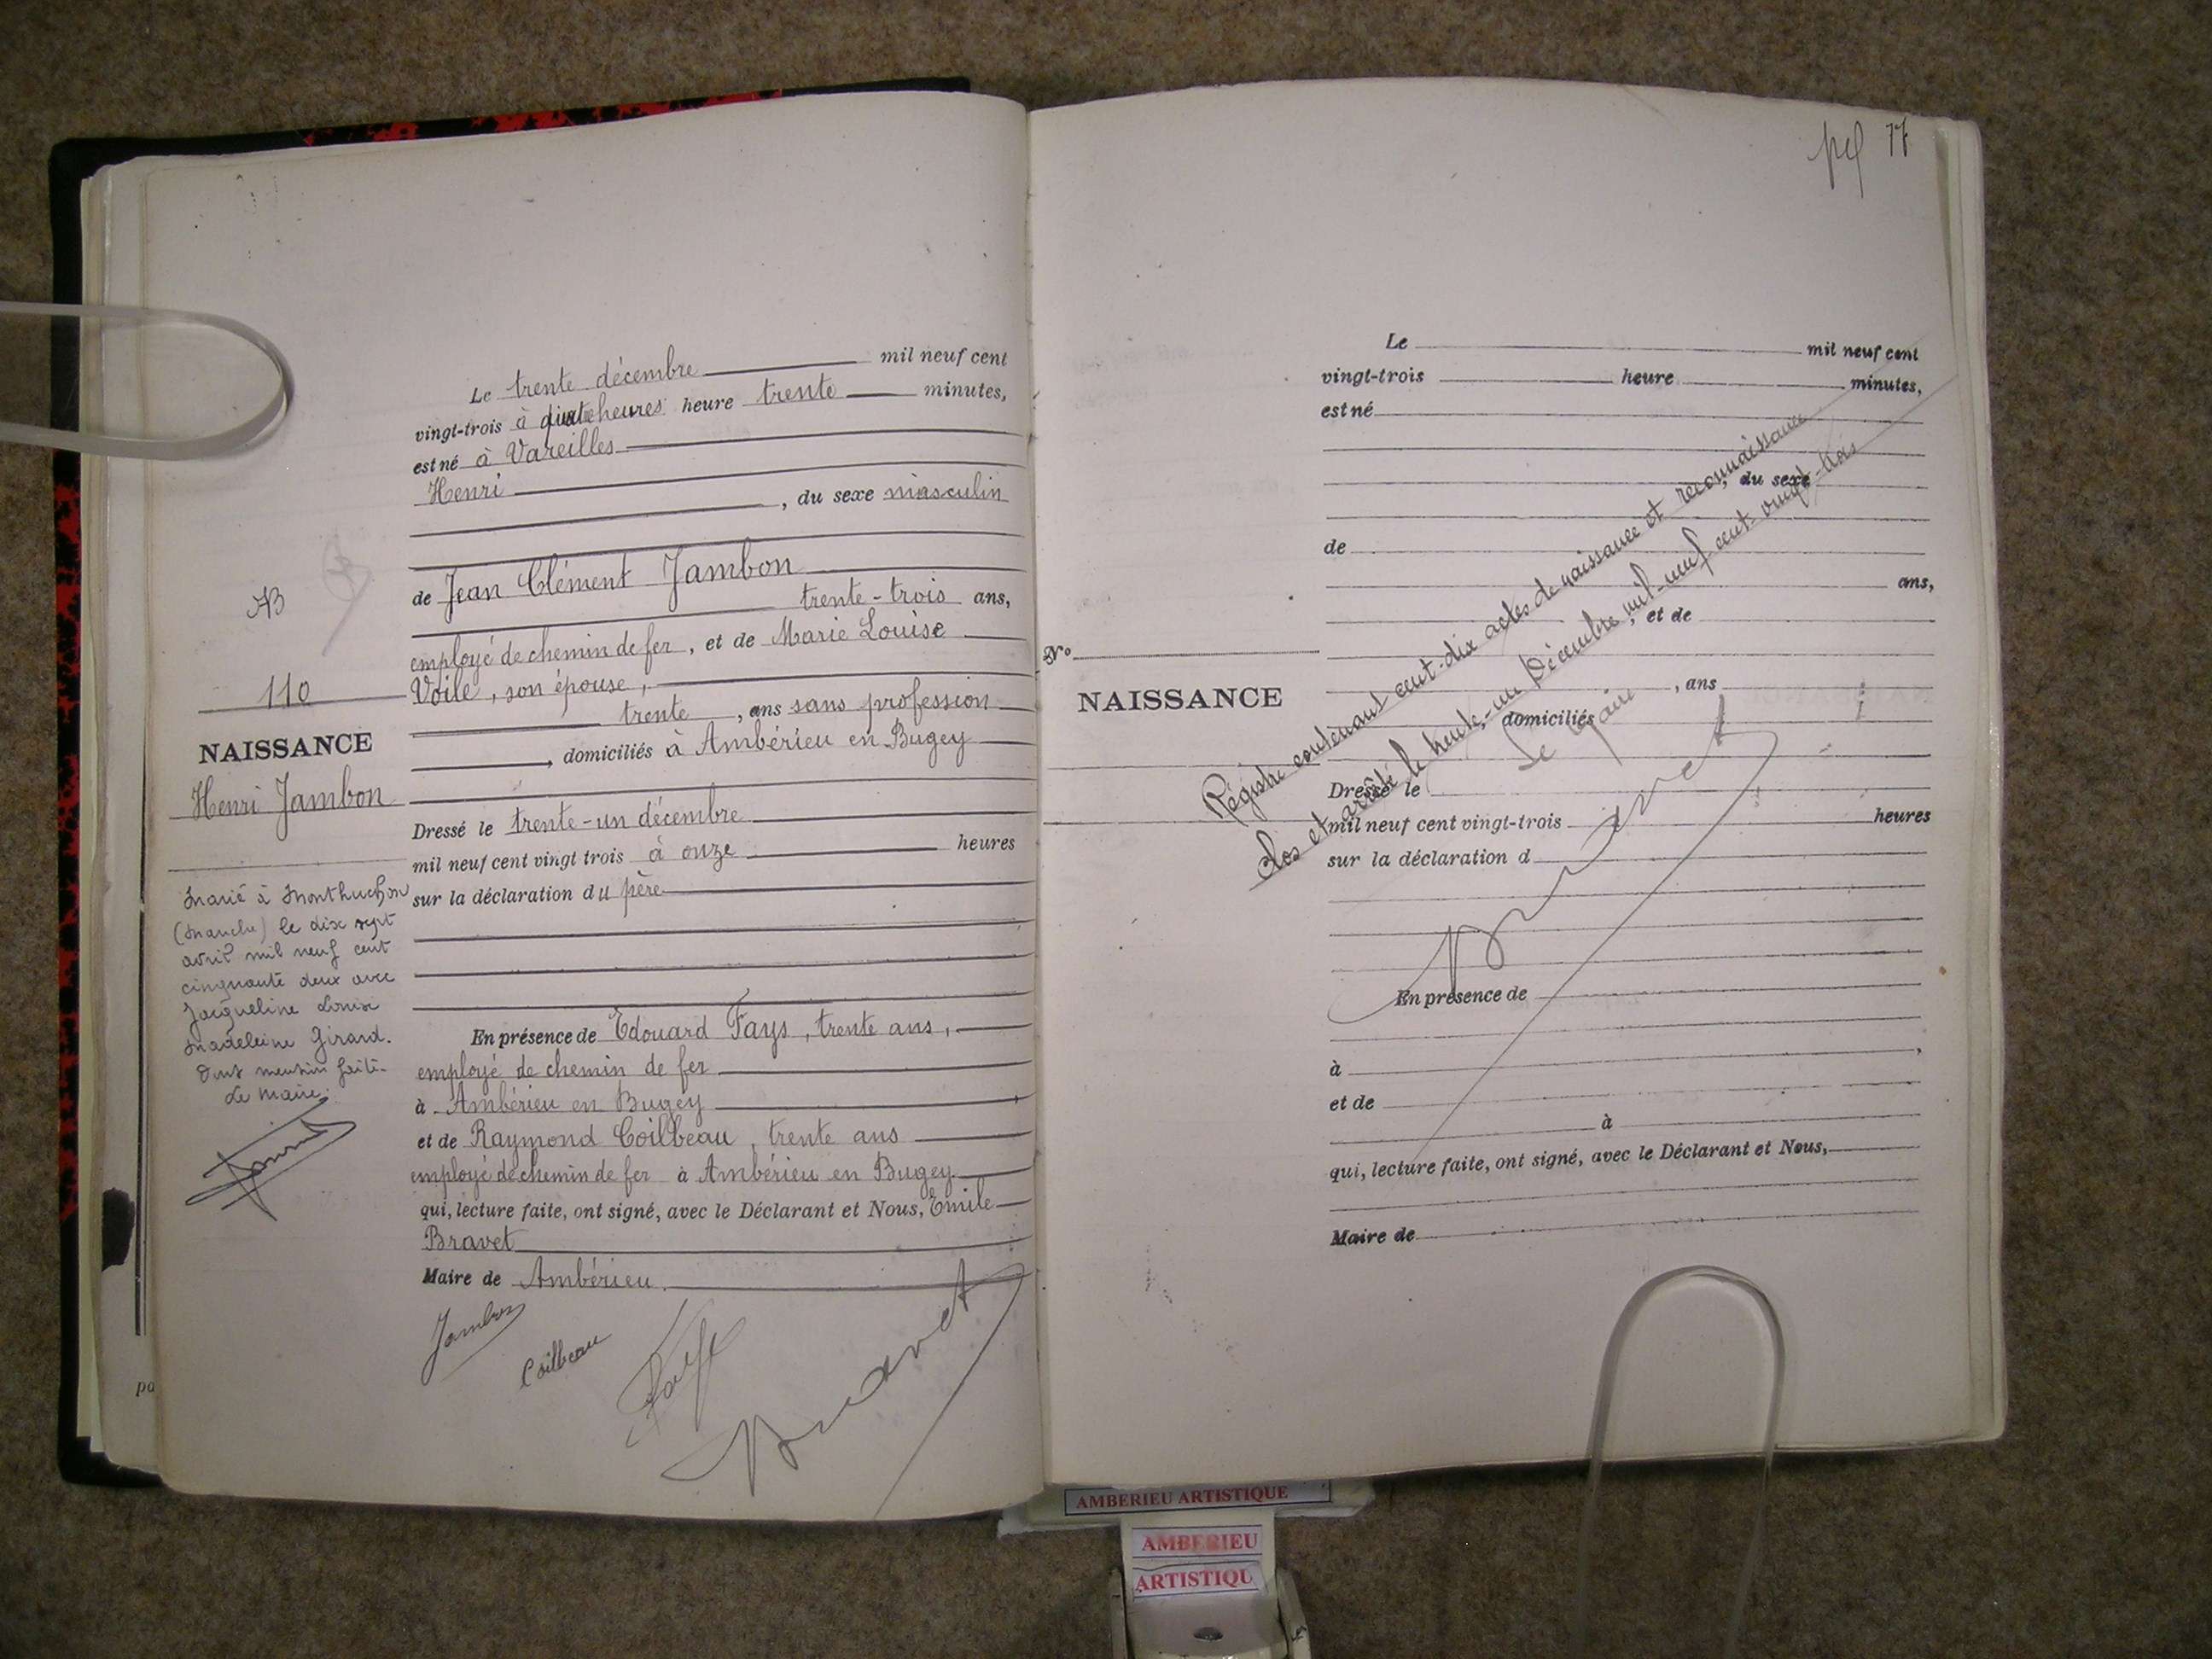 Le trente décembre mil neuf cent
vingt-trois à heures heure trente minutes,
est né à Vareilles
Henri
, du sexe masculin
de Jean Clément Jambon
trente-trois ans,
employé de chemin de fer, et de Marie Louise
Voile, son épouse,
trente, ans sans profession
, domiciliés à Ambérieu en Bugey
Dressé le trente-un décembre
mil neuf cent vingt trois à onze heures
sur la déclaration du père
En présence de Edouard Fays, trente ans,
employé de chemin de fer
à Ambérieu en Bugey
et de Raymond Coilbeau, trente ans
employé de chemin de fer à Ambérieu en Bugey
qui, lecture faite, ont signé, avec le Déclarant et Nous, Emile
Bravet
Maire de Ambérieu
Jambon
Coilbeau
Bravet
AB
110
NAISSANCE
Henri Jambon
Marié à Monthuchon
(Manche) le dix sept
avril mil neuf cent
cinquante deux avec
Jacqueline Louise
Madeleine Girard.
Dont mention faite.
Le Maire.
po
77
Le mil neuf cent
vingt-trois heure minutes,
est né
, du sexe
de
ans,
, et de
, ans
domiciliés
Dressé le
mil neuf cent vingt-trois heures
sur la déclaration d
En présence de
à ,
et de
à
qui, lecture faite, ont signé, avec le Déclarant et Nous,
Maire de
N°
NAISSANCE
Régistre contenant cent-dix actes de naissance et reconnaissance
clos et arrêté le trente-un Décembre, mil-neuf cent-vingt-trois
Le Maire
Bravet
AMBERIEU ARTISTIQUE
AMBERIEU
ARTISTIQU